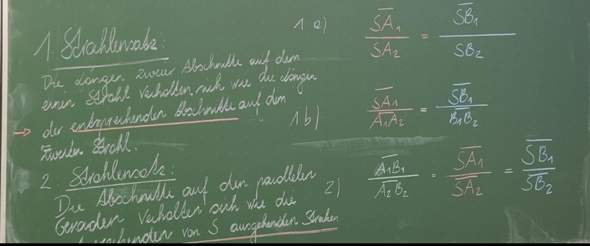 1. Strahlensatz:
Die Längen zweier Abschnitte auf dem
einen Strahl verhalten sich wie die Längen
der entsprechenden Abschnitte auf dem
zweiten Strahl.
2. Strahlensatz:
Die Abschnitte auf den parallelen
Geraden verhalten sich wie die
von S ausgehenden Strahlen
1a) SA₁ / SA₂ = SB₁ / SB₂
1b) SA₁ / A₁A₂ = SB₁ / B₁B₂
2) A₁B₁ / A₂B₂ = SA₁ / SA₂ = SB₁ / SB₂